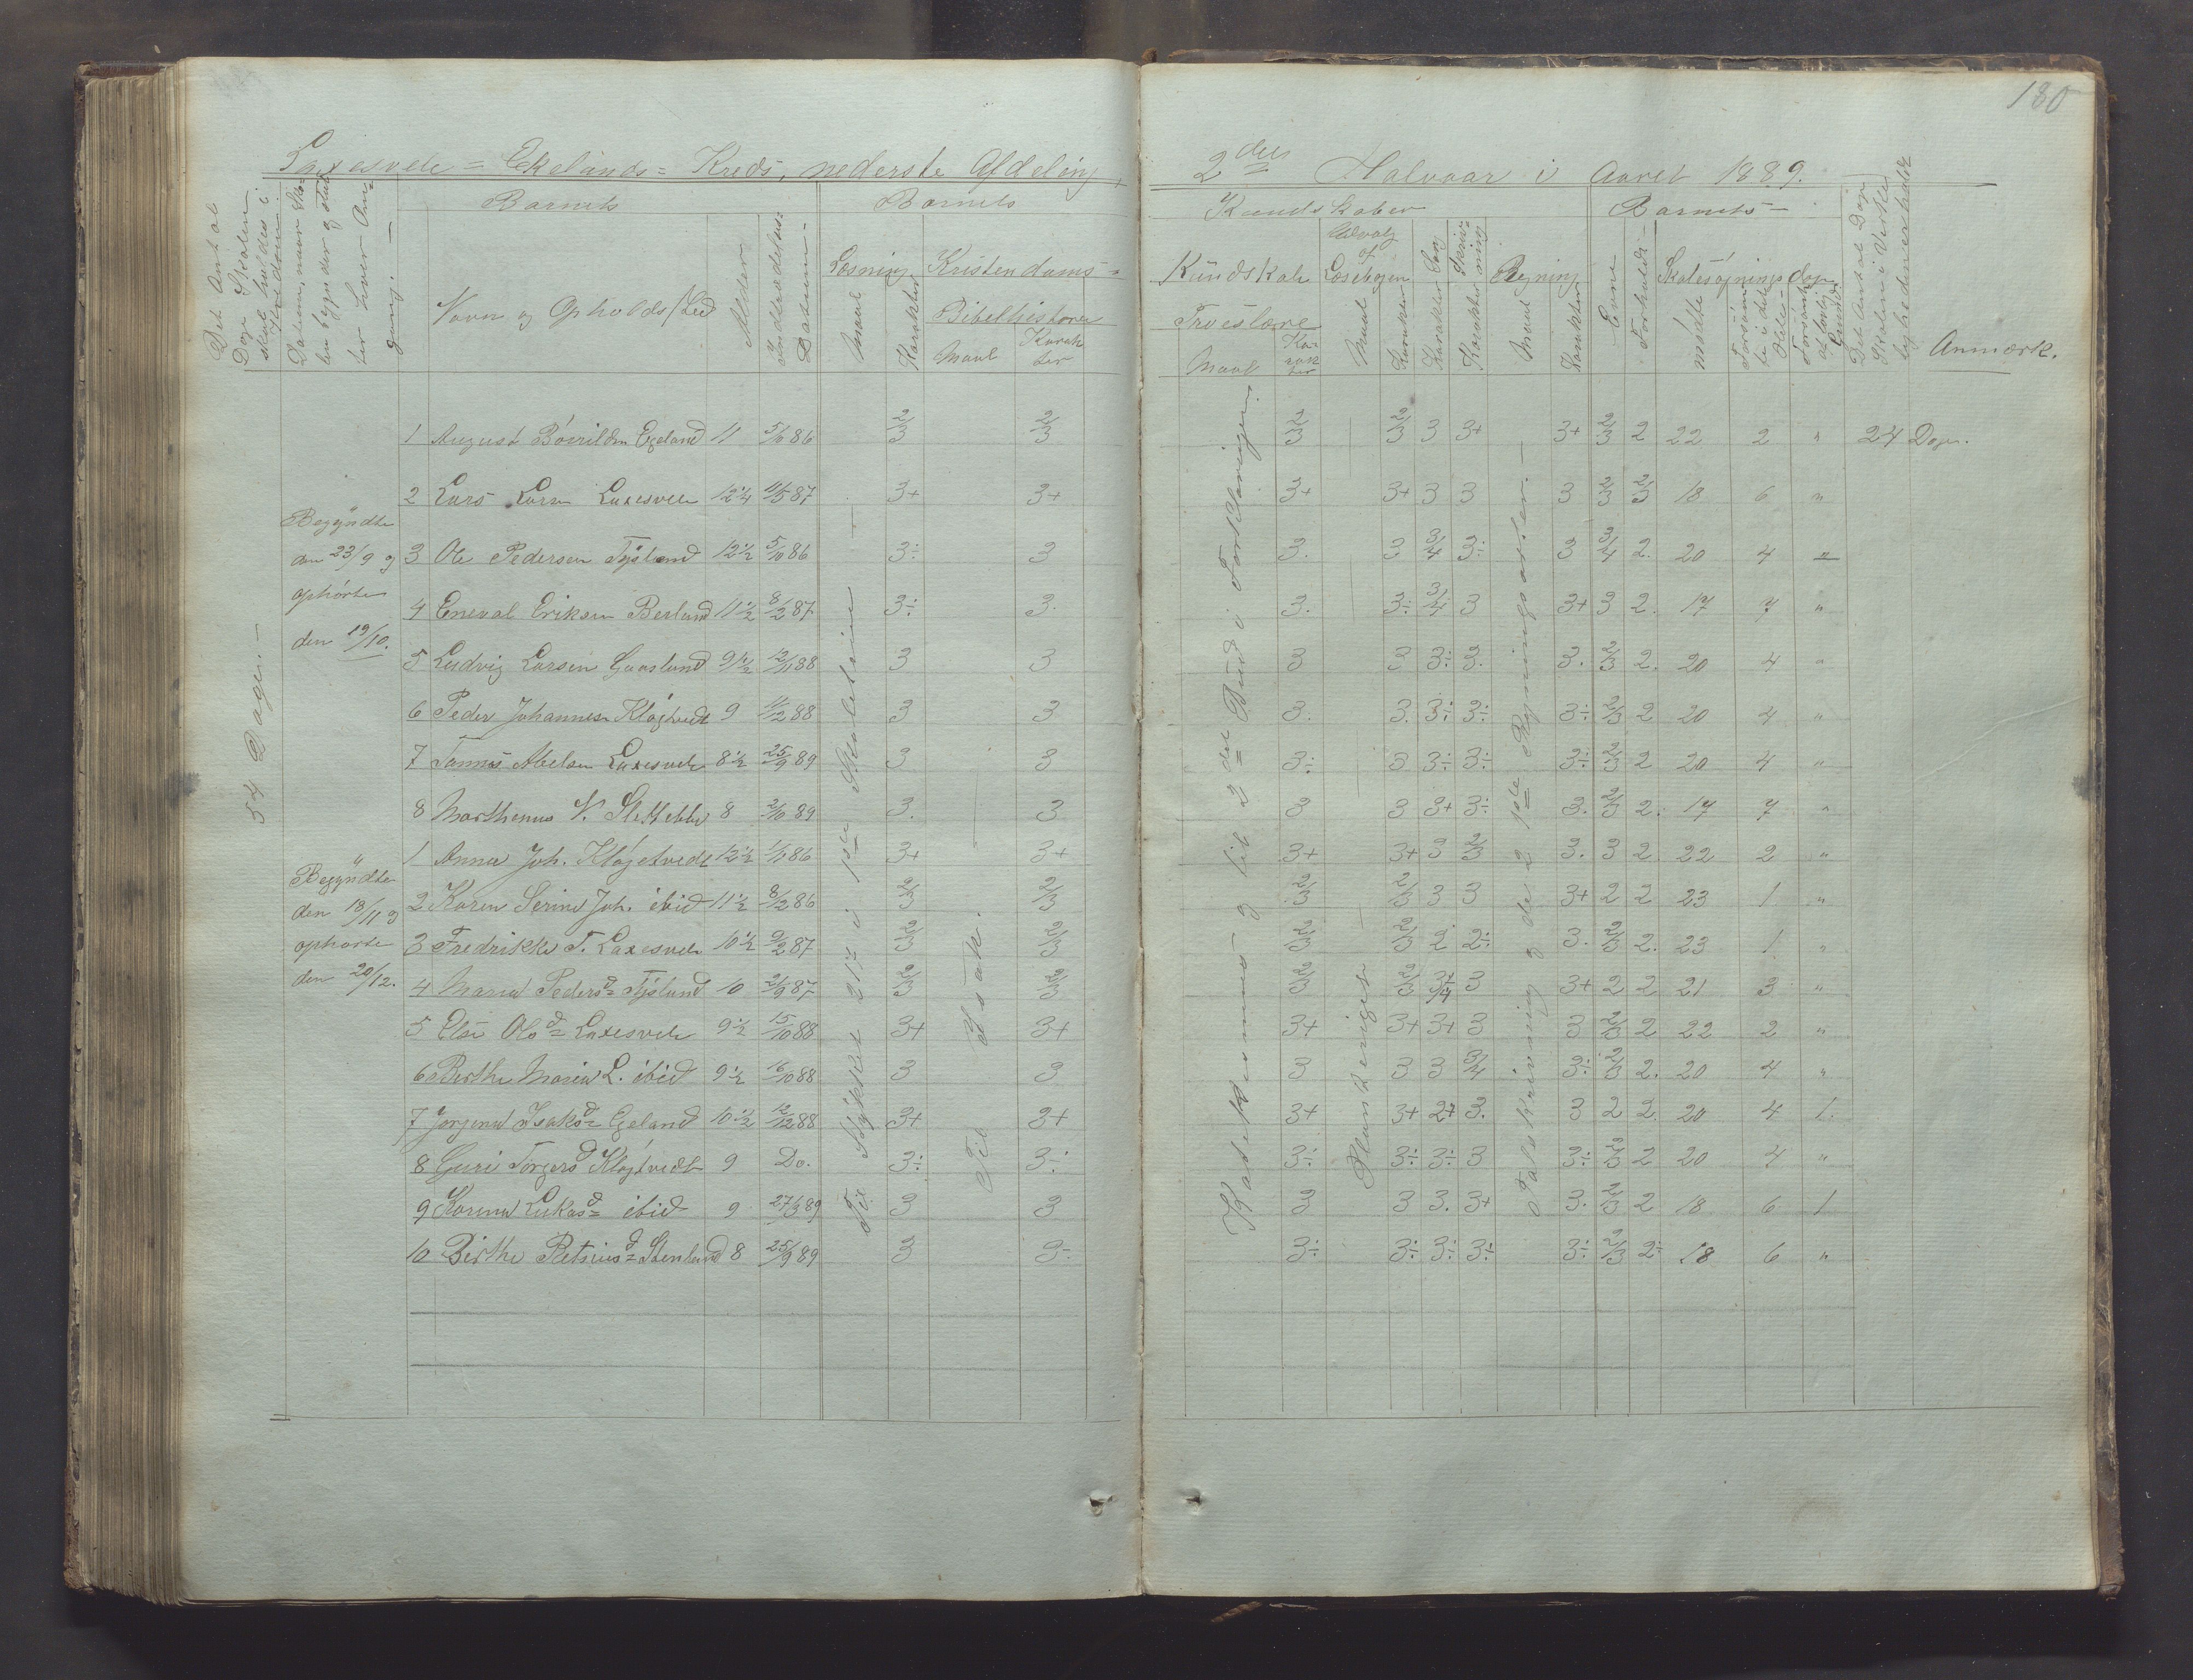 180
Laxesvele = Ekelands = Kreds, nederste Afdeling,
2den Halvaar i Aaret 1889.
Det Antal Dage Skolen skal holdes i Kredsen.
Datum, naar Skolen begynder og slutter hver Omgang. —
Barnets
Navn og Opholdssted
Alder
Indtrædelses-Datum.
Barnets
Læsning
Maal
Karakter
Kristendoms-
Bibelhistorie
Maal
Karakter
Kundskaber
Kundskab
Troeslære
Maal
Karakter
Udvalg af Læsebogen
Maal
Karakter
Sang
Karakter
Skrivning
Karakter
Regning
Maal
Karakter
Barnets —
Evne
Forhold. —
Skolesøgnings Dage
mødte
Forsømte i det Hele
Forsømte af lovlig Grund
Det Antal Dage Skolen i Virkeligheden er holdt
Anmærk.
54 Dage. —
Begyndte
den 23/9 og
ophørte
den 19/10.
Begyndte
den 18/11 og
ophørte
den 20/12.
1 August Egeland 11 5/6 86 2/3 2/3 2/3 2/3 3 3+ 3+ 2/3 2 22 2 " 24 Dage.
2 Lars Larsen Laxesvele 12 1/4 11/5 87 3+ 3+ 3+ 3+ 3 3 3 2/3 2/3 18 6 "
3 Ole Pedersen Tjsland 12 1/2 5/10 86 3÷ 3 3. 3 3/4 3÷ 3 3/4 2. 20 4 "
4 Eneval Eriksen Berland 11 1/2 8/2 87 3÷ 3. 3. 3÷ 3/4 3 3+ 3 2. 17 7 "
5 Ludvig Larsen Gaasland 9 1/2 12/11 88 3 3 3 3 3÷ 3. 3. 2/3 2. 20 4 "
6 Peder Johannesen Kløgtvedt 9 11/12 88 3 3 3. 3. 3÷ 3÷ 3÷ 2/3 2 20 4 "
7 Tønnes Abelsen Laxesvele 8 1/2 25/9 89 3 3 3÷ 3 3÷ 3÷ 3÷ 2/3 2 20 4 "
8 Marthenus N. Slettebø 8 2/10 89 3. 3 3 3 3+ 3÷ 3. 2/3 2. 17 7 "
1 Anna Joh. Kløgetvedt 12 1/2 1/11 86 3+ 3+ 3+ 3+ 3 2/3 3. 3 2 22 2 "
2 Karen Serine Joh. ibid 11 1/2 8/12 86 2/3 2/3 2/3 2/3 3 3 3+ 2 2 23 1 "
3 Fredrikke T. Laxesvele 10 1/2 9/2 87 2/3 2/3 2/3 2/3 2 2÷ 3. 2/3 2. 23 1. "
4 Maria Pedersd. Tjsland 10 2/9 87 2/3 2/3 2/3 2/3 3+/4 3 3+ 2 2 21 3 "
5 Else Olsd. Laxesvele 9 1/2 15/10 88 3+ 3+ 3+ 3+ 3+ 3 3 2/3 2 22 2 "
6 Berthe Maria L. ibid 9 1/2 16/10 88 3 3 3 3 3 3/4 3÷ 2/3 2. 20 4 "
7 Jørgena Isaksd. Egeland 10 1/2 12/12 88 3+ 3+ 3+ 3+ 2+ 3. 3 2 2. 20 4 1.
8 Guri Torgersd. Kløgtvedt 9 Do. 3÷ 3÷ 3÷ 3÷ 3÷ 3 3÷ 2/3 2 20 4 "
9 Karena Lukasd. ibid 9 27/3 89 3 3 3 3 3. 3+ 3. 2/3 2 18 6 1
10 Birthe Petriusd. Stenland 8 25/9 89 3 3÷ 3÷ 3÷ 3÷ 3÷ 3÷ 2/3 2÷ 18 6 "
Til Stykket 217 i 1ste Skoletrin —
Til Isak. —
Katekismus og til 2det Bud i Forklaringen
Regningsarter. —